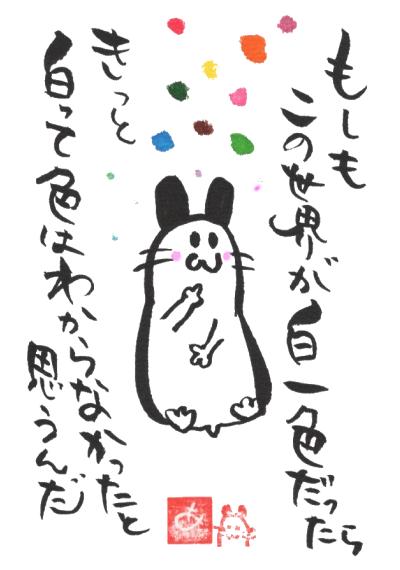 もしも
この世界が白一色だったら
きっと
白って色はわからなかったと
思うんだ